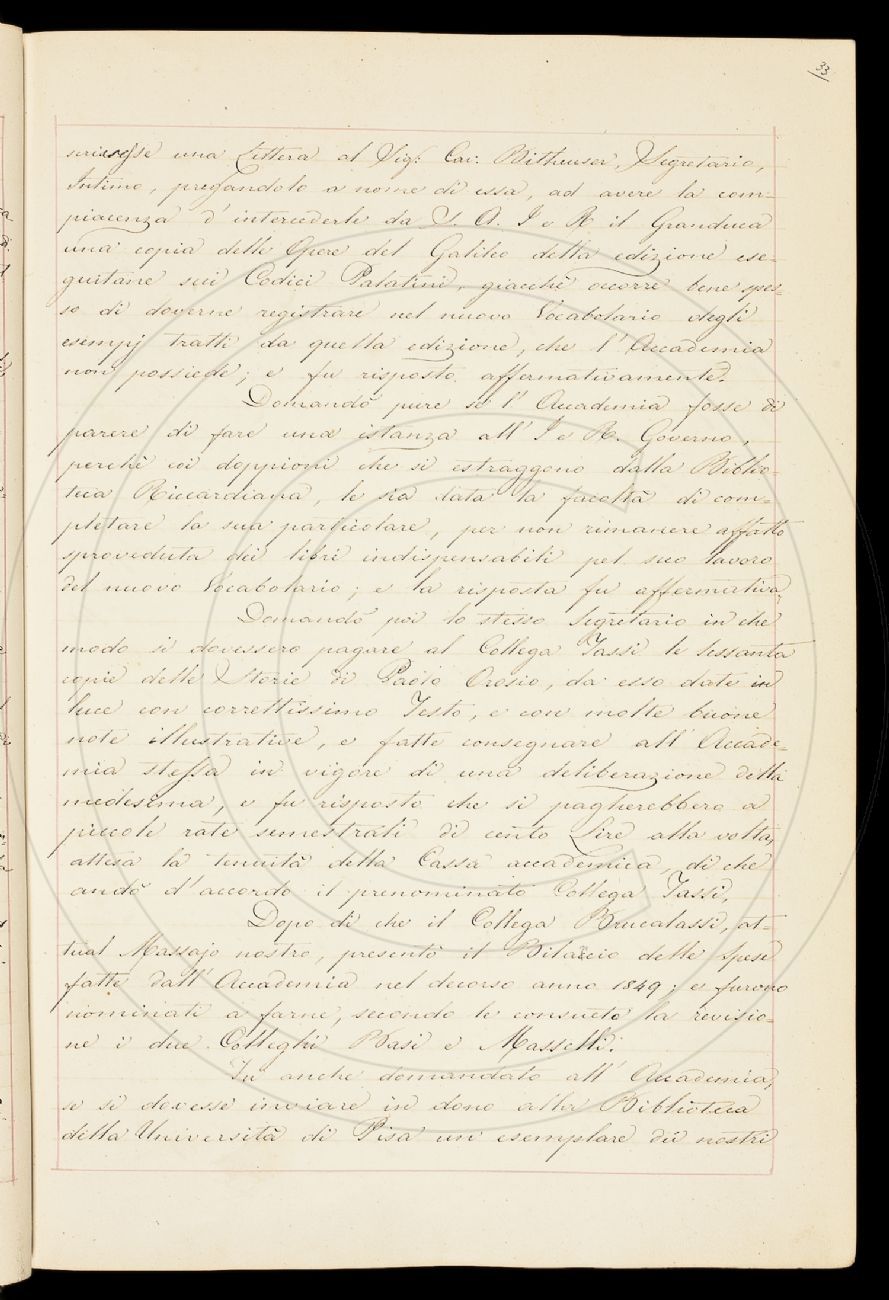 33
scrivesse una Lettera al Sig: Cav: Bitheuser, Segretario,
Intimo, pregandolo a nome di essa, ad avere la com-
piacenza d'intercederle da S. A. I e R il Granduca
una copia delle Opere del Galileo della edizione ese-
guitane sui Codici Palatini, giacchè occorre bene spes-
so di doverne registrare nel nuovo Vocabolario degli
esempj tratti da quella edizione, che l'Accademia
non possiede; e fu risposto affermativamente.
Domandò pure se l'Accademia fosse di
parere di fare una istanza all'I e R. Governo,
perchè coi doppioni che si estraggono dalla Biblio-
teca Riccardiana, le sia data la facoltà di com-
pletare la sua particolare, per non rimanere affatto
sproveduta dei libri indispensabili pel suo lavoro
del nuovo Vocabolario; e la risposta fu affermativa.
Domandò poi lo stesso Segretario in che
modo si dovessero pagare al Collega Tassi le sessanta
copie delle Storie di Paolo Orosio, da esso date in
luce con correttissimo Testo, e con molte buone
note illustrative, e fatte consegnare all'Accade-
mia stessa in vigore di una deliberazione della
medesima, e fu risposto che si pagherebbero a
piccole rate semestrali di cento Lire alla volta,
attesa la tenuità della Cassa accademica, di che
andò d'accordo il prenominato Collega Tassi.
Dopo di che il Collega Brucalassi, at-
tual Massajo nostro, presentò il Bilancio delle Spese
fatte dall'Accademia nel decorso anno 1849; e furono
nominati a farne, secondo le consueto la revisio-
ne i due Colleghi Basi e Masselli.
Fu anche domandato all'Accademia,
se si dovesse inviare in dono alla Biblioteca
della Università di Pisa un esemplare dei nostri